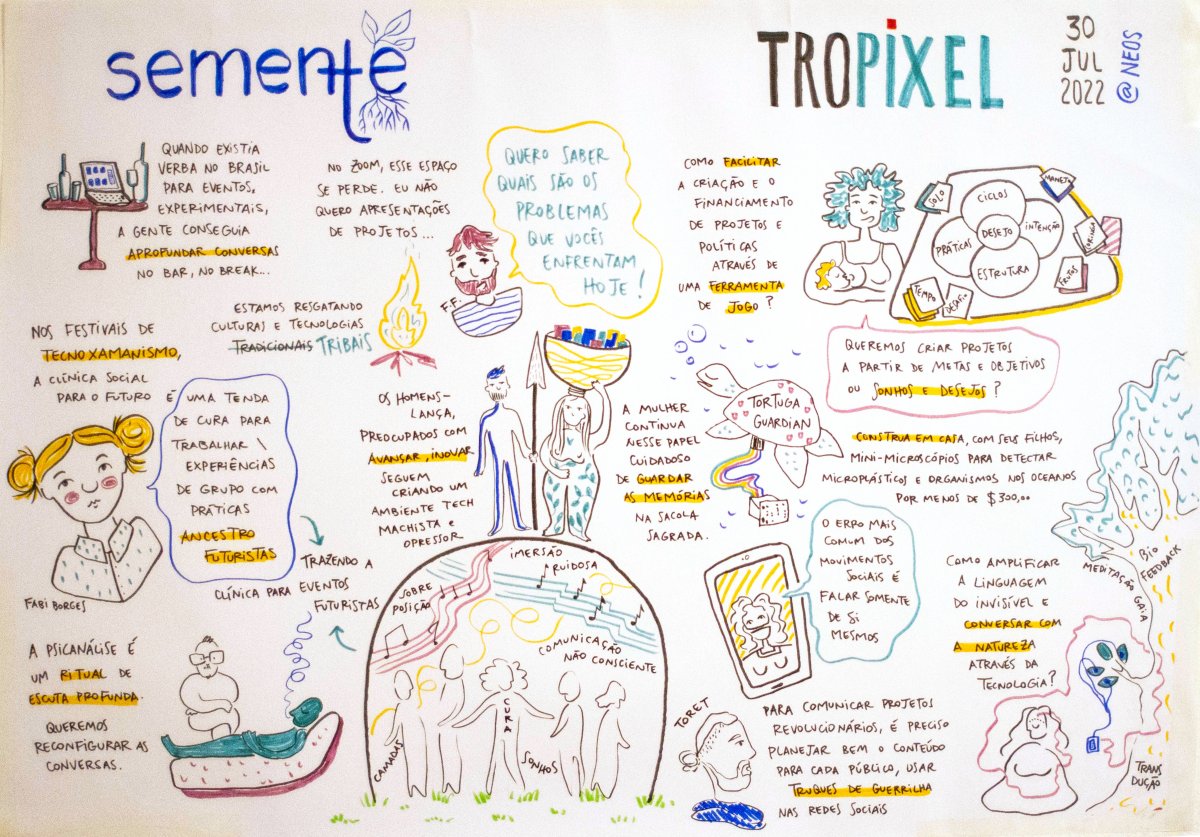 semente
TROPIXEL
30
JUL
2022
@NEOS
QUANDO EXISTIA
VERBA NO BRASIL
PARA EVENTOS,
EXPERIMENTAIS,
A GENTE CONSEGUIA
APROFUNDAR CONVERSAS
NO BAR, NO BREAK...
NO ZOOM, ESSE ESPAÇO
SE PERDE. EU NÃO
QUERO APRESENTAÇÕES
DE PROJETOS...
F.F.
QUERO SABER
QUAIS SÃO OS
PROBLEMAS
QUE VOCÊS
ENFRENTAM
HOJE!
COMO FACILITAR
A CRIAÇÃO E O
FINANCIAMENTO
DE PROJETOS E
POLÍTICAS
ATRAVÉS DE
UMA FERRAMENTA
DE JOGO?
SOLO
CICLOS
MANEJO
PRÁTICAS
DESEJO
INTENÇÃO
ESTRUTURA
TEMPO
DESAFIO
FRUTOS
QUEREMOS CRIAR PROJETOS
A PARTIR DE METAS E OBJETIVOS
OU SONHOS E DESEJOS?
ESTAMOS RESGATANDO
CULTURAS E TECNOLOGIAS
TRADICIONAIS TRIBAIS
NOS FESTIVAIS DE
TECNOXAMANISMO,
A CLÍNICA SOCIAL
PARA O FUTURO É
UMA TENDA
DE CURA PARA
TRABALHAR \
EXPERIÊNCIAS
DE GRUPO COM
PRÁTICAS
ANCESTRO
FUTURISTAS
FABI BORGES
TRAZENDO A
CLÍNICA PARA EVENTOS
FUTURISTAS
OS HOMENS-
LANÇA,
PREOCUPADOS COM
AVANÇAR, INOVAR
SEGUEM
CRIANDO UM
AMBIENTE TECH
MACHISTA E
OPRESSOR
A MULHER
CONTINUA
NESSE PAPEL
CUIDADOSO
DE GUARDAR
AS MEMÓRIAS
NA SACOLA
SAGRADA.
TORTUGA
GUARDIAN
CONSTRUA EM CASA, COM SEUS FILHOS,
MINI-MICROSCÓPIOS PARA DETECTAR
MICROPLÁSTICOS E ORGANISMOS NOS OCEANOS
POR MENOS DE $300,00
A PSICANÁLISE É
UM RITUAL DE
ESCUTA PROFUNDA.
QUEREMOS
RECONFIGURAR AS
CONVERSAS.
SOBRE
POSIÇÃO
IMERSÃO
RUIDOSA
COMUNICAÇÃO
NÃO CONSCIENTE
CAMADAS
CURA
SONHOS
O ERRO MAIS
COMUM DOS
MOVIMENTOS
SOCIAIS É
FALAR SOMENTE
DE SI
MESMOS
TORET
PARA COMUNICAR PROJETOS
REVOLUCIONÁRIOS, É PRECISO
PLANEJAR BEM O CONTEÚDO
PARA CADA PÚBLICO, USAR
TRUQUES DE GUERRILHA
NAS REDES SOCIAIS
COMO AMPLIFICAR
A LINGUAGEM
DO INVISÍVEL E
CONVERSAR COM
A NATUREZA
ATRAVÉS DA
TECNOLOGIA?
MEDITAÇÃO GAIA
BIO
FEEDBACK
TRANS
DUÇÃO